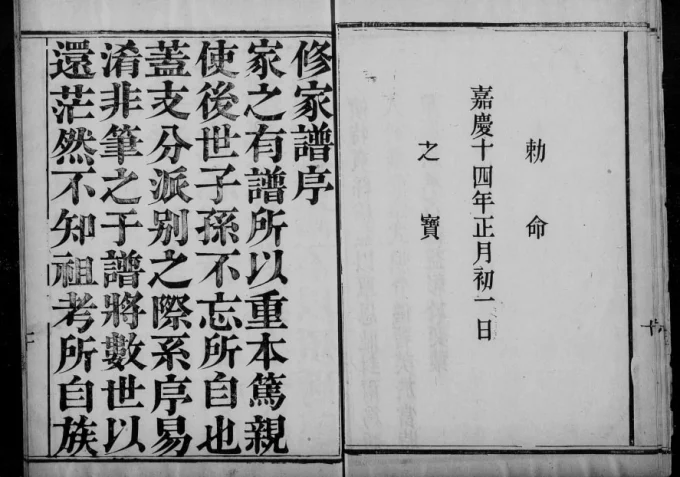 勅命
嘉慶十四年正月初一日
之寶
修家譜序
家之有譜所以重本篤親
使後世子孫不忘所自也
蓋支分派别之際系序易
淆非筆之于譜將數世以
還茫然不知祖考所自族